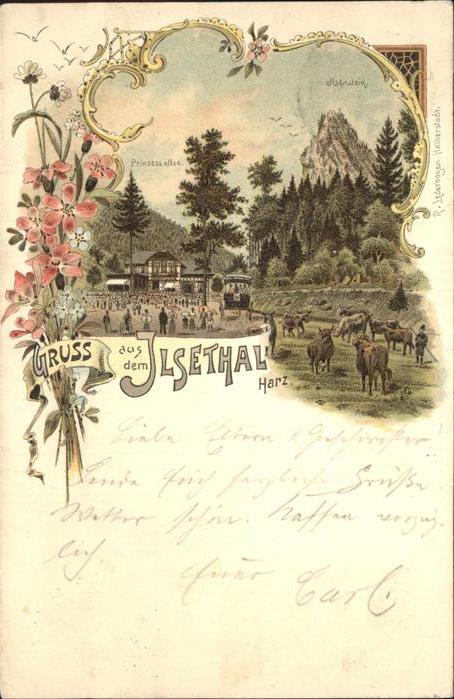 Ilsenstein.
Prinzess Ilse.
R. Lederbogen, Halberstadt.
GRUSS aus dem JLSETHAL
Harz.
Liebe Eltern & Geschwister!
Sende Euch herzliche Grüße.
Wetter schön. Kaffee vorzüg-
lich
Euer Carl.